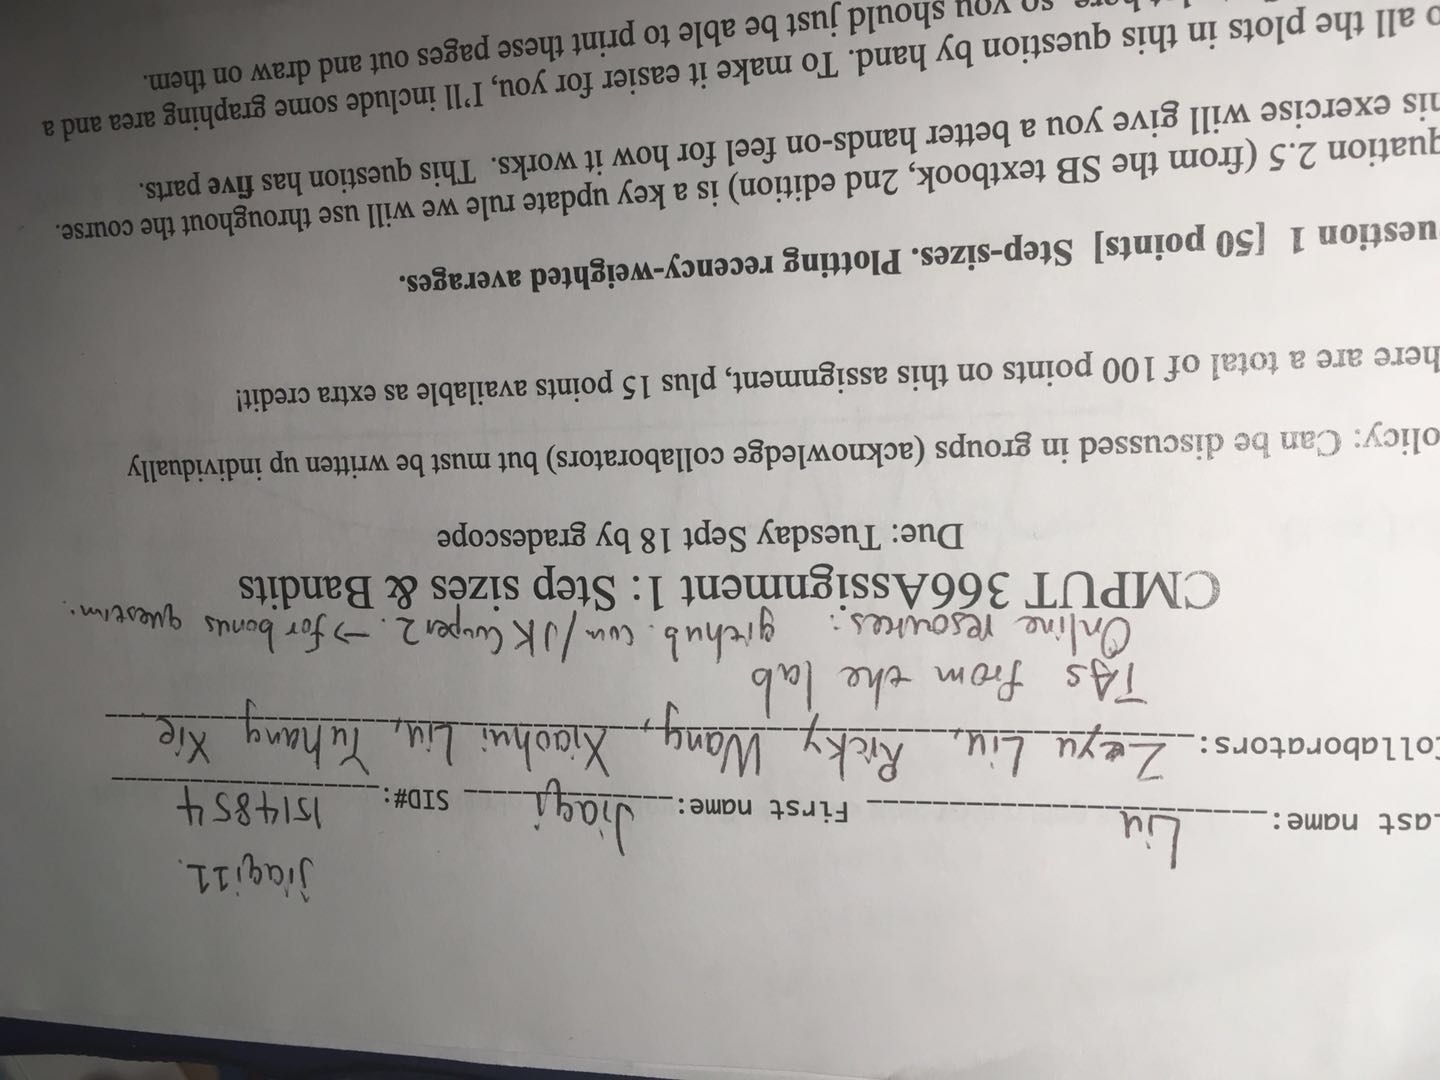 jiaqi11.
Last name: Liu First name: Jiaqi SID#: 1514854
Collaborators: Zeyu Liu, Ricky Wang, Xiaohui Liu, Yuhang Xie
TAs from the lab
Online resources: github.com/JKCooper2. → for bonus question.
CMPUT 366Assignment 1: Step sizes & Bandits
Due: Tuesday Sept 18 by gradescope
olicy: Can be discussed in groups (acknowledge collaborators) but must be written up individually
here are a total of 100 points on this assignment, plus 15 points available as extra credit!
uestion 1 [50 points] Step-sizes. Plotting recency-weighted averages.
quation 2.5 (from the SB textbook, 2nd edition) is a key update rule we will use throughout the course.
his exercise will give you a better hands-on feel for how it works. This question has five parts.
o all the plots in this question by hand. To make it easier for you, I'll include some graphing area and a
so you should just be able to print these pages out and draw on them.